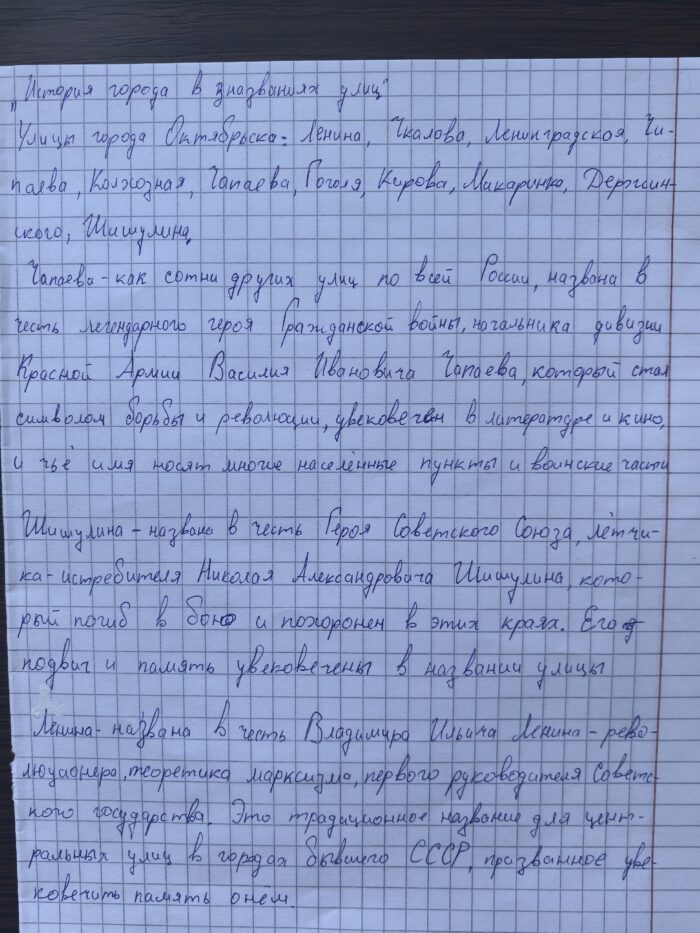 "История города в названиях улиц"
Улицы города Октябрьска: Ленина, Чкалова, Ленинградская, Чи-
паева, Колхозная, Чапаева, Гоголя, Кирова, Макаринко, Держин-
ского, Шишулина.
Чапаева - как сотни других улиц по всей России, названа в
честь легендарного героя Гражданской войны, начальника дивизии
Красной Армии Василия Ивановича Чапаева, который стал
символом борьбы и революции, увековечен в литературе и кино,
и чьё имя носят многие населённые пункты и воинские части
Шишулина - названа в честь Героя Советского Союза, лётчи-
ка-истребителя Николая Александровича Шишулина, кото-
рый погиб в бою и похоронен в этих краях. Его
подвиг и память увековечены в названии улицы
Ленина - названа в честь Владимира Ильича Ленина - рево-
люционера, теоретика марксизма, первого руководителя Советс-
кого государства. Это традиционное название для цент-
ральных улиц в городах бывшего СССР, призванное уве-
ковечить память о нём.